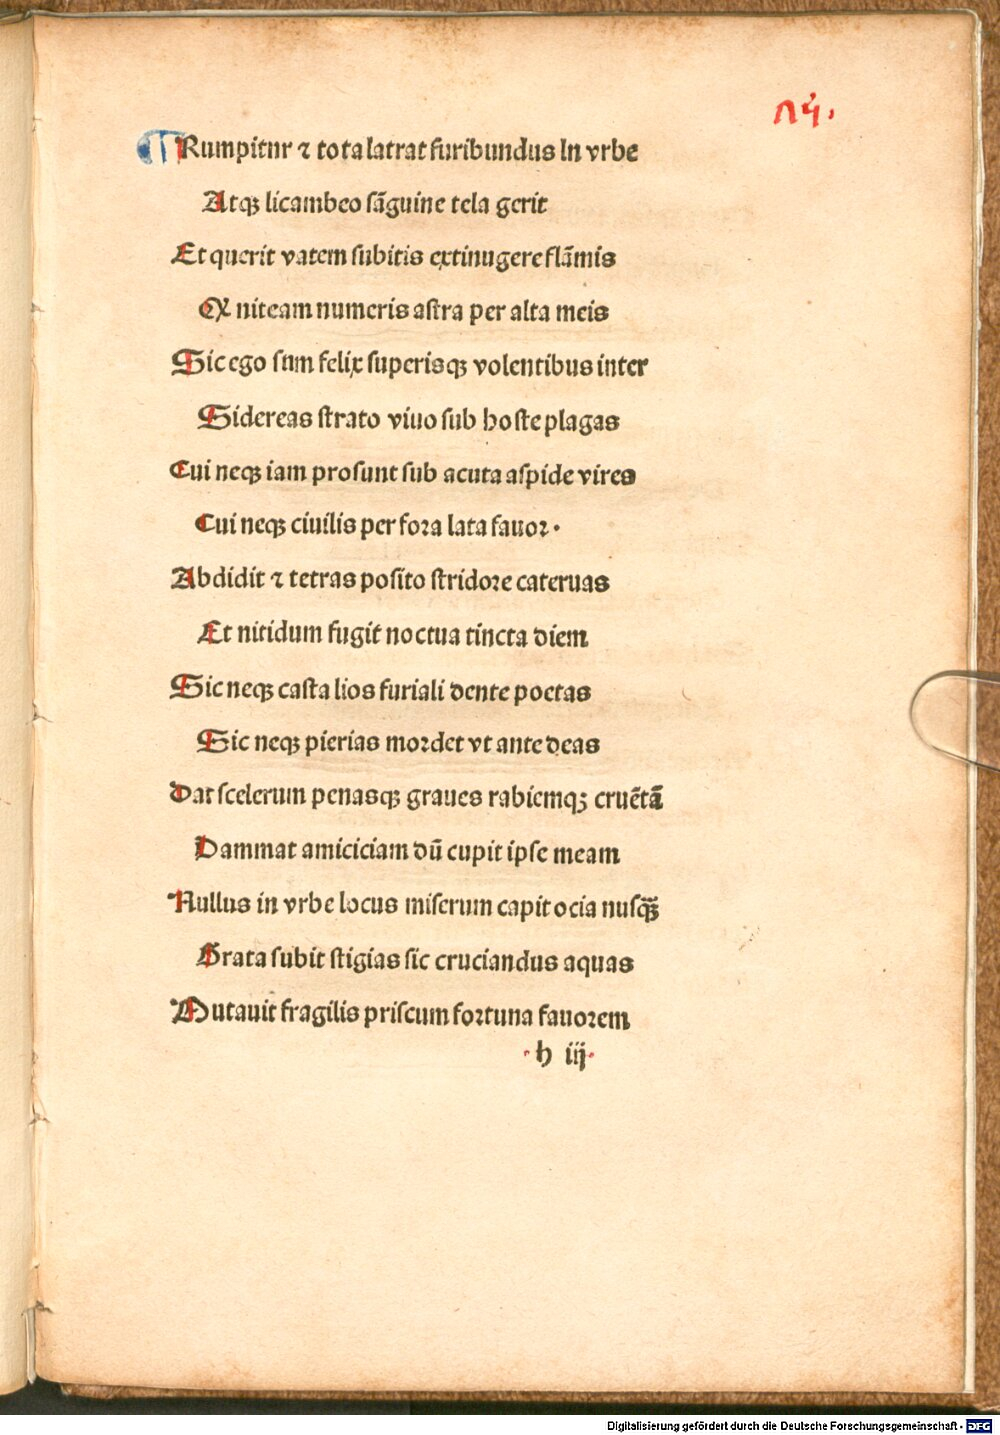 14.
¶ Rumpitur ⁊ tota latrat furibundus In vrbe
Atqꝫ licambeo sāguine tela gerit
Et querit vatem subitis extinugere flāmis
Qꝫ niteam numeris astra per alta meis
Sic ego sum felix superisqꝫ volentibus inter
Sidereas strato viuo sub hoste plagas
Cui neqꝫ iam prosunt sub acuta aspide vires
Cui neqꝫ ciuilis per fora lata fauor.
Abdidit ⁊ tetras posito stridore cateruas
Et nitidum fugit noctua tincta diem
Sic neqꝫ castalios furiali dente poetas
Sic neqꝫ pierias mordet vt ante deas
Dat scelerum penasqꝫ graues rabiemqꝫ cruētā
Dammat amiciciam dū cupit ipse meam
Nullus in vrbe locus miserum capit ocia nusqꝫ̄
Grata subit stigias sic cruciandus aquas
Mutauit fragilis priscum fortuna fauorem
h iij
Digitalisierung gefördert durch die Deutsche Forschungsgemeinschaft - DFG